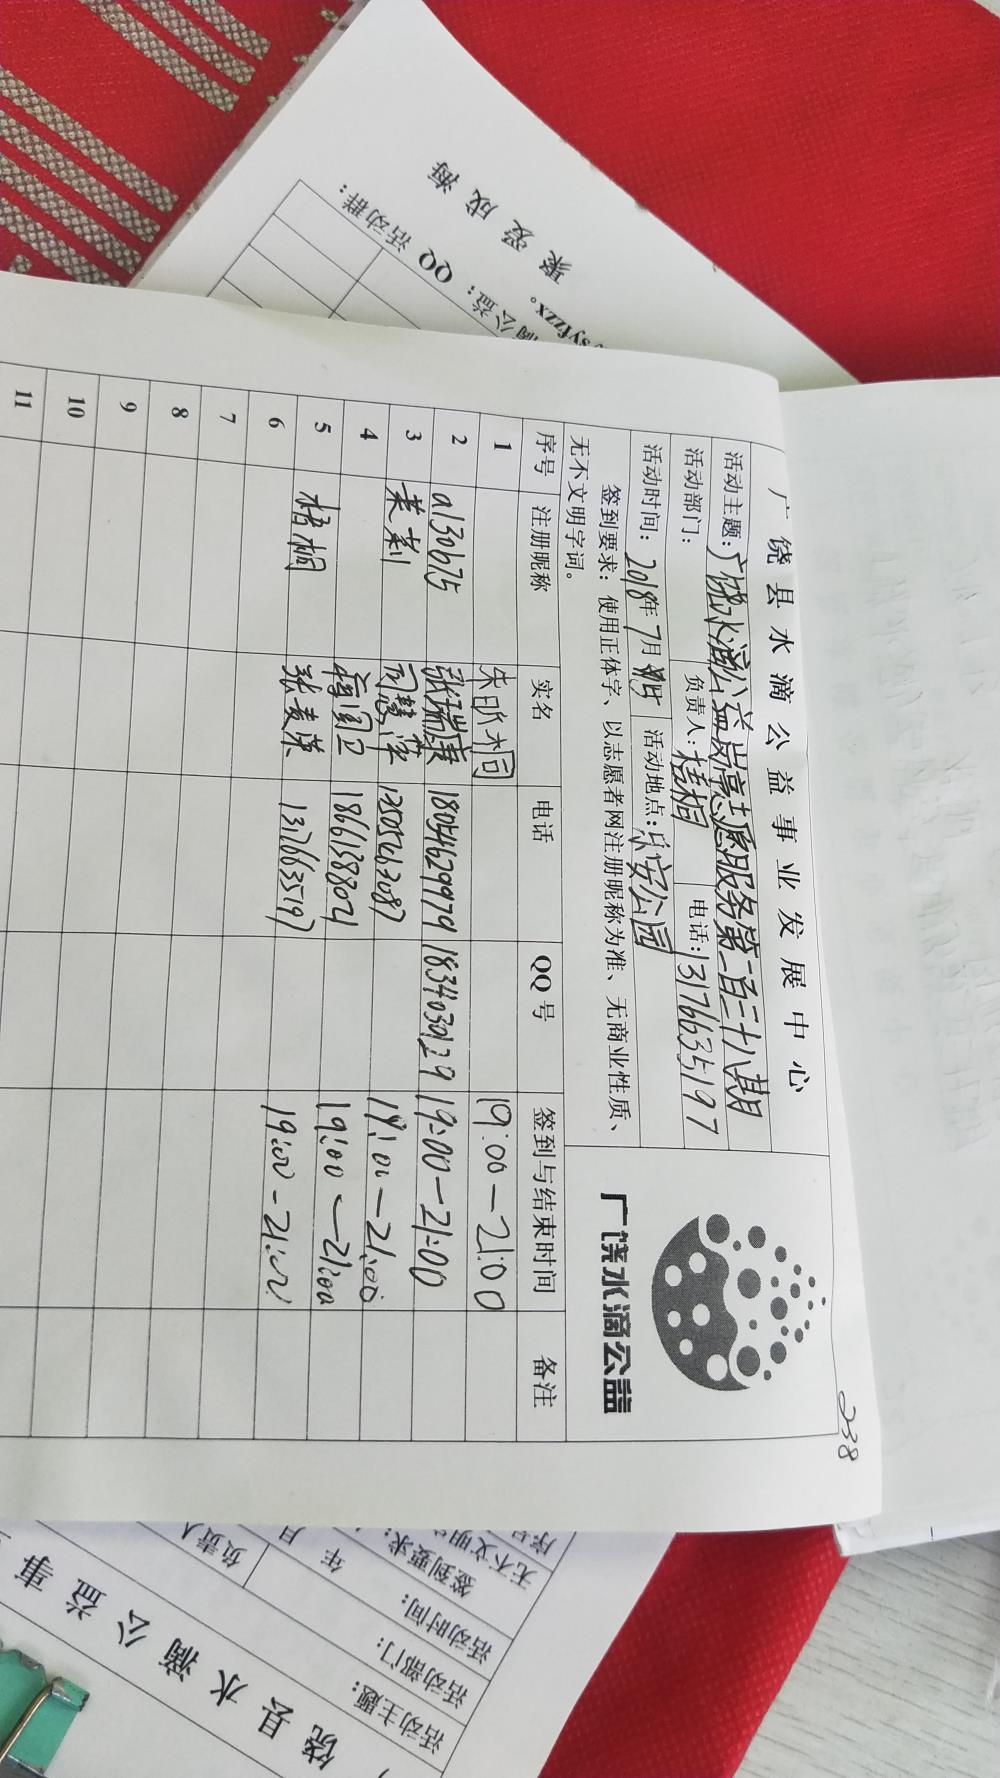 238
广饶县水滴公益事业发展中心
活动主题：广饶水滴公益岗亭志愿服务第二百三十八期
活动部门： 负责人：梧桐 电话：13176635197
活动时间：2018年7月 活动地点：乐安公园
签到要求：使用正体字、以志愿者网注册昵称为准、无商业性质、
无不文明字词。
广饶水滴公益
序号 注册昵称 实名 电话 QQ号 签到与结束时间 备注
1 朱昕桐 19:00—21:00
2 a130b75 张瑞康 18054629979 1834030129 19:00—21:00
3 茉莉 19:00—21:00
4 18661388021 19:00—21:00
5 梧桐 张麦荣 13176635197 19:00-21:00
6
7
8
9
10
11
聚爱成海
QQ活动群：
滴公益：
syfzzx。
饶县水滴公益事
活动主题：
活动部门：
负责人
活动时间：
年 月
签到要求：
无不文明
序号